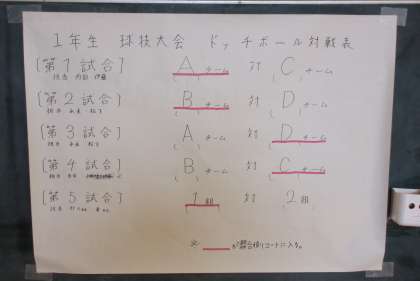 1年生 球技大会 ドッチボール対戦表
[第1試合] Aチーム 対 Cチーム
担当 内田 伊藤
[第2試合] Bチーム 対 Dチーム
担当
[第3試合] Aチーム 対 Dチーム
担当
[第4試合] Bチーム 対 Cチーム
担当
[第5試合] 1組 対 2組
担当
※ が舞台側コートに入る。